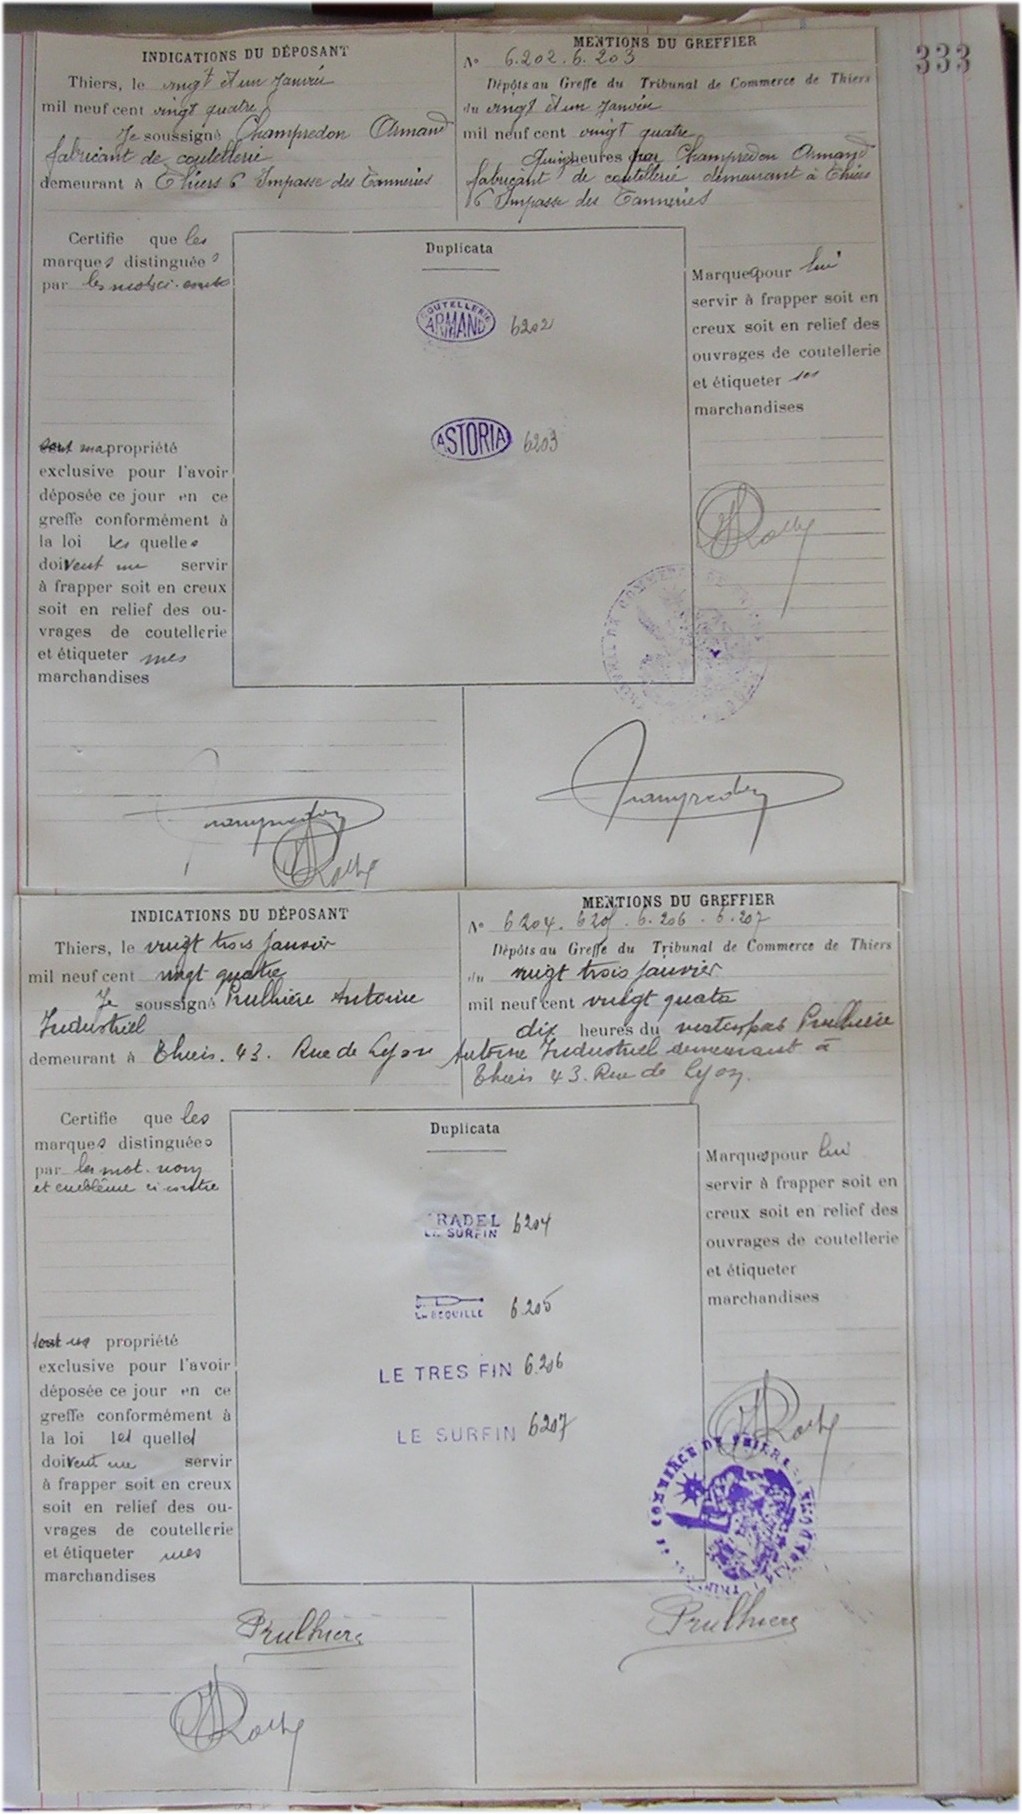 333
INDICATIONS DU DÉPOSANT
Thiers, le vingt et un Janvier
mil neuf cent vingt quatre
Je soussigné Champredon Armand
fabricant de coutellerie
demeurant à Thiers 6 Impasse des Tanneries
MENTIONS DU GREFFIER
N° 6.202.6.203
Dépôts au Greffe du Tribunal de Commerce de Thiers
du vingt et un Janvier
mil neuf cent vingt quatre
heures par Champredon Armand
fabricant de coutellerie demeurant à Thiers
6 Impasse des Tanneries
Certifie que les
marques distinguées
par les mots ci-contre
sont ma propriété
exclusive pour l'avoir
déposée ce jour en ce
greffe conformément à
la loi les quelles
doivent me servir
à frapper soit en creux
soit en relief des ou-
vrages de coutellerie
et étiqueter mes
marchandises
Duplicata
COUTELLERIE
ARMAND 6202
ASTORIA 6203
Marques pour lui
servir à frapper soit en
creux soit en relief des
ouvrages de coutellerie
et étiqueter ses
marchandises
Champredon
Champredon
INDICATIONS DU DÉPOSANT
Thiers, le vingt trois janvier
mil neuf cent vingt quatre
Je soussigné Prulhière Antoine
Industriel
demeurant à Thiers. 43. Rue de Lyon
MENTIONS DU GREFFIER
N° 6204. 6205. 6.206. 6.207
Dépôts au Greffe du Tribunal de Commerce de Thiers
du vingt trois janvier
mil neuf cent vingt quatre
dix heures du par Prulhière
Antoine Industriel demeurant à
Thiers 43. Rue de Lyon.
Certifie que les
marques distinguées
par les mot. nom
et emblème ci contre
sont propriété
exclusive pour l'avoir
déposée ce jour en ce
greffe conformément à
la loi les quelles
doivent me servir
à frapper soit en creux
soit en relief des ou-
vrages de coutellerie
et étiqueter mes
marchandises
Duplicata
RADEL
LE SURFIN 6204
6.205
LE TRES FIN 6.206
LE SURFIN 6207
Marques pour lui
servir à frapper soit en
creux soit en relief des
ouvrages de coutellerie
et étiqueter
marchandises
Prulhière
Prulhière